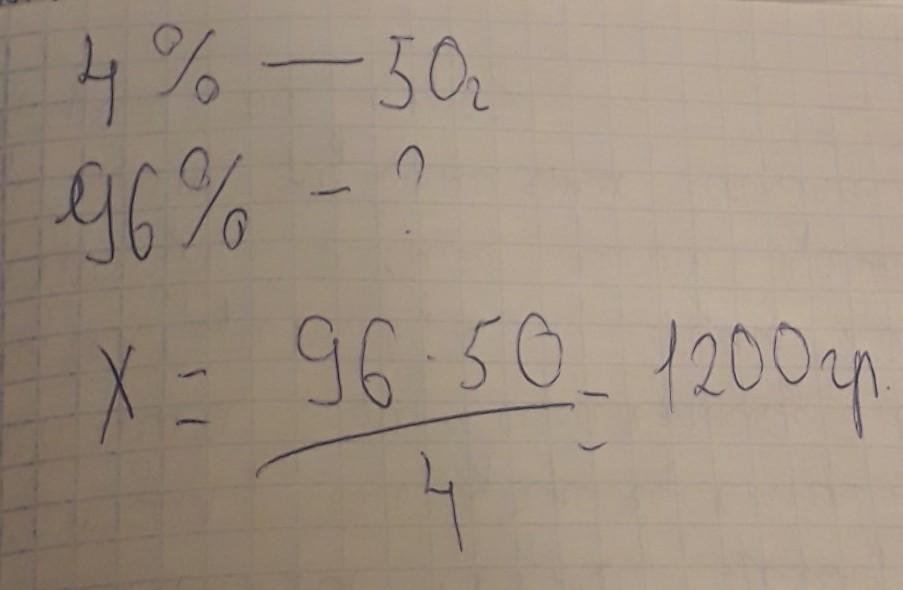 4% — 50г
96% - ?
X = 96 · 50 / 4 = 1200гр.